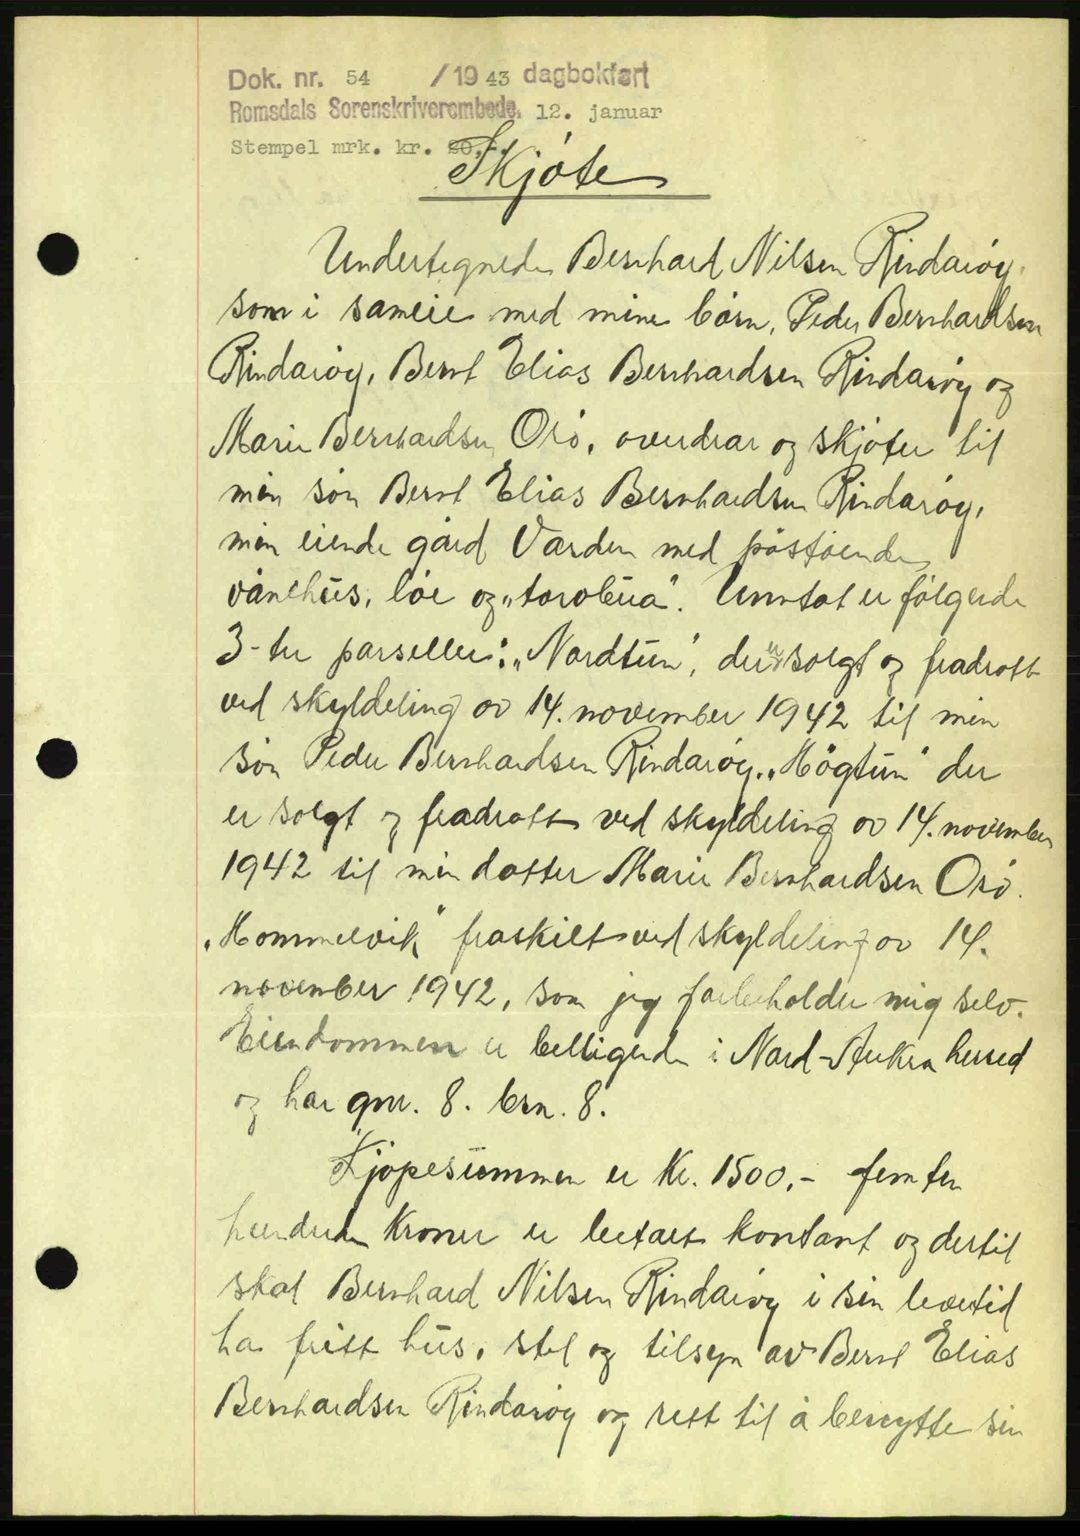 Dok. nr. 54 /1943 dagbokført
Romsdals Sorenskriverembede, 12. januar
Stempel mrk. kr. 20,-.
Skjøte
Undertegnede Bernhard Nilsen Rindarøy,
som i sameie med mine børn, Peder Bernhardsen
Rindarøy, Bernt Elias Bernhardsen Rindarøy og
Marie Bernhardsen Orø, overdrar og skjøter til
min søn Bernt Elias Bernhardsen Rindarøy,
min eiende gård Varden med påståendes
vånehus, løe og „torvbua“. Unntat er følgende
3-tre parseller: „Nordtun“, der er solgt og fradratt
ved skyldeling av 14. november 1942 til min
søn Peder Bernhardsen Rindarøy. „Høgtun“ der
er solgt og fradratt ved skyldeling av 14. november
1942 til min datter Marie Bernhardsen Orø.
„Hommelvik“ fraskilt ved skyldeling av 14.
november 1942, som jeg forbeholder mig selv.
Eiendommen er belligende i Nord-Aukra herred
og har gnr. 8. brn. 8.
Kjøpesummen er Kr. 1500,- femten
hundrede Kroner er betalt kontant og dertil
skal Bernhard Nilsen Rindarøy i sin levetid
ha fritt hus, stel og tilsyn av Bernt Elias
Bernhardsen Rindarøy og rett til å benytte sin